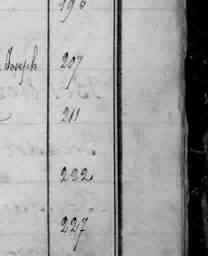 Joseph 297
211
222
227